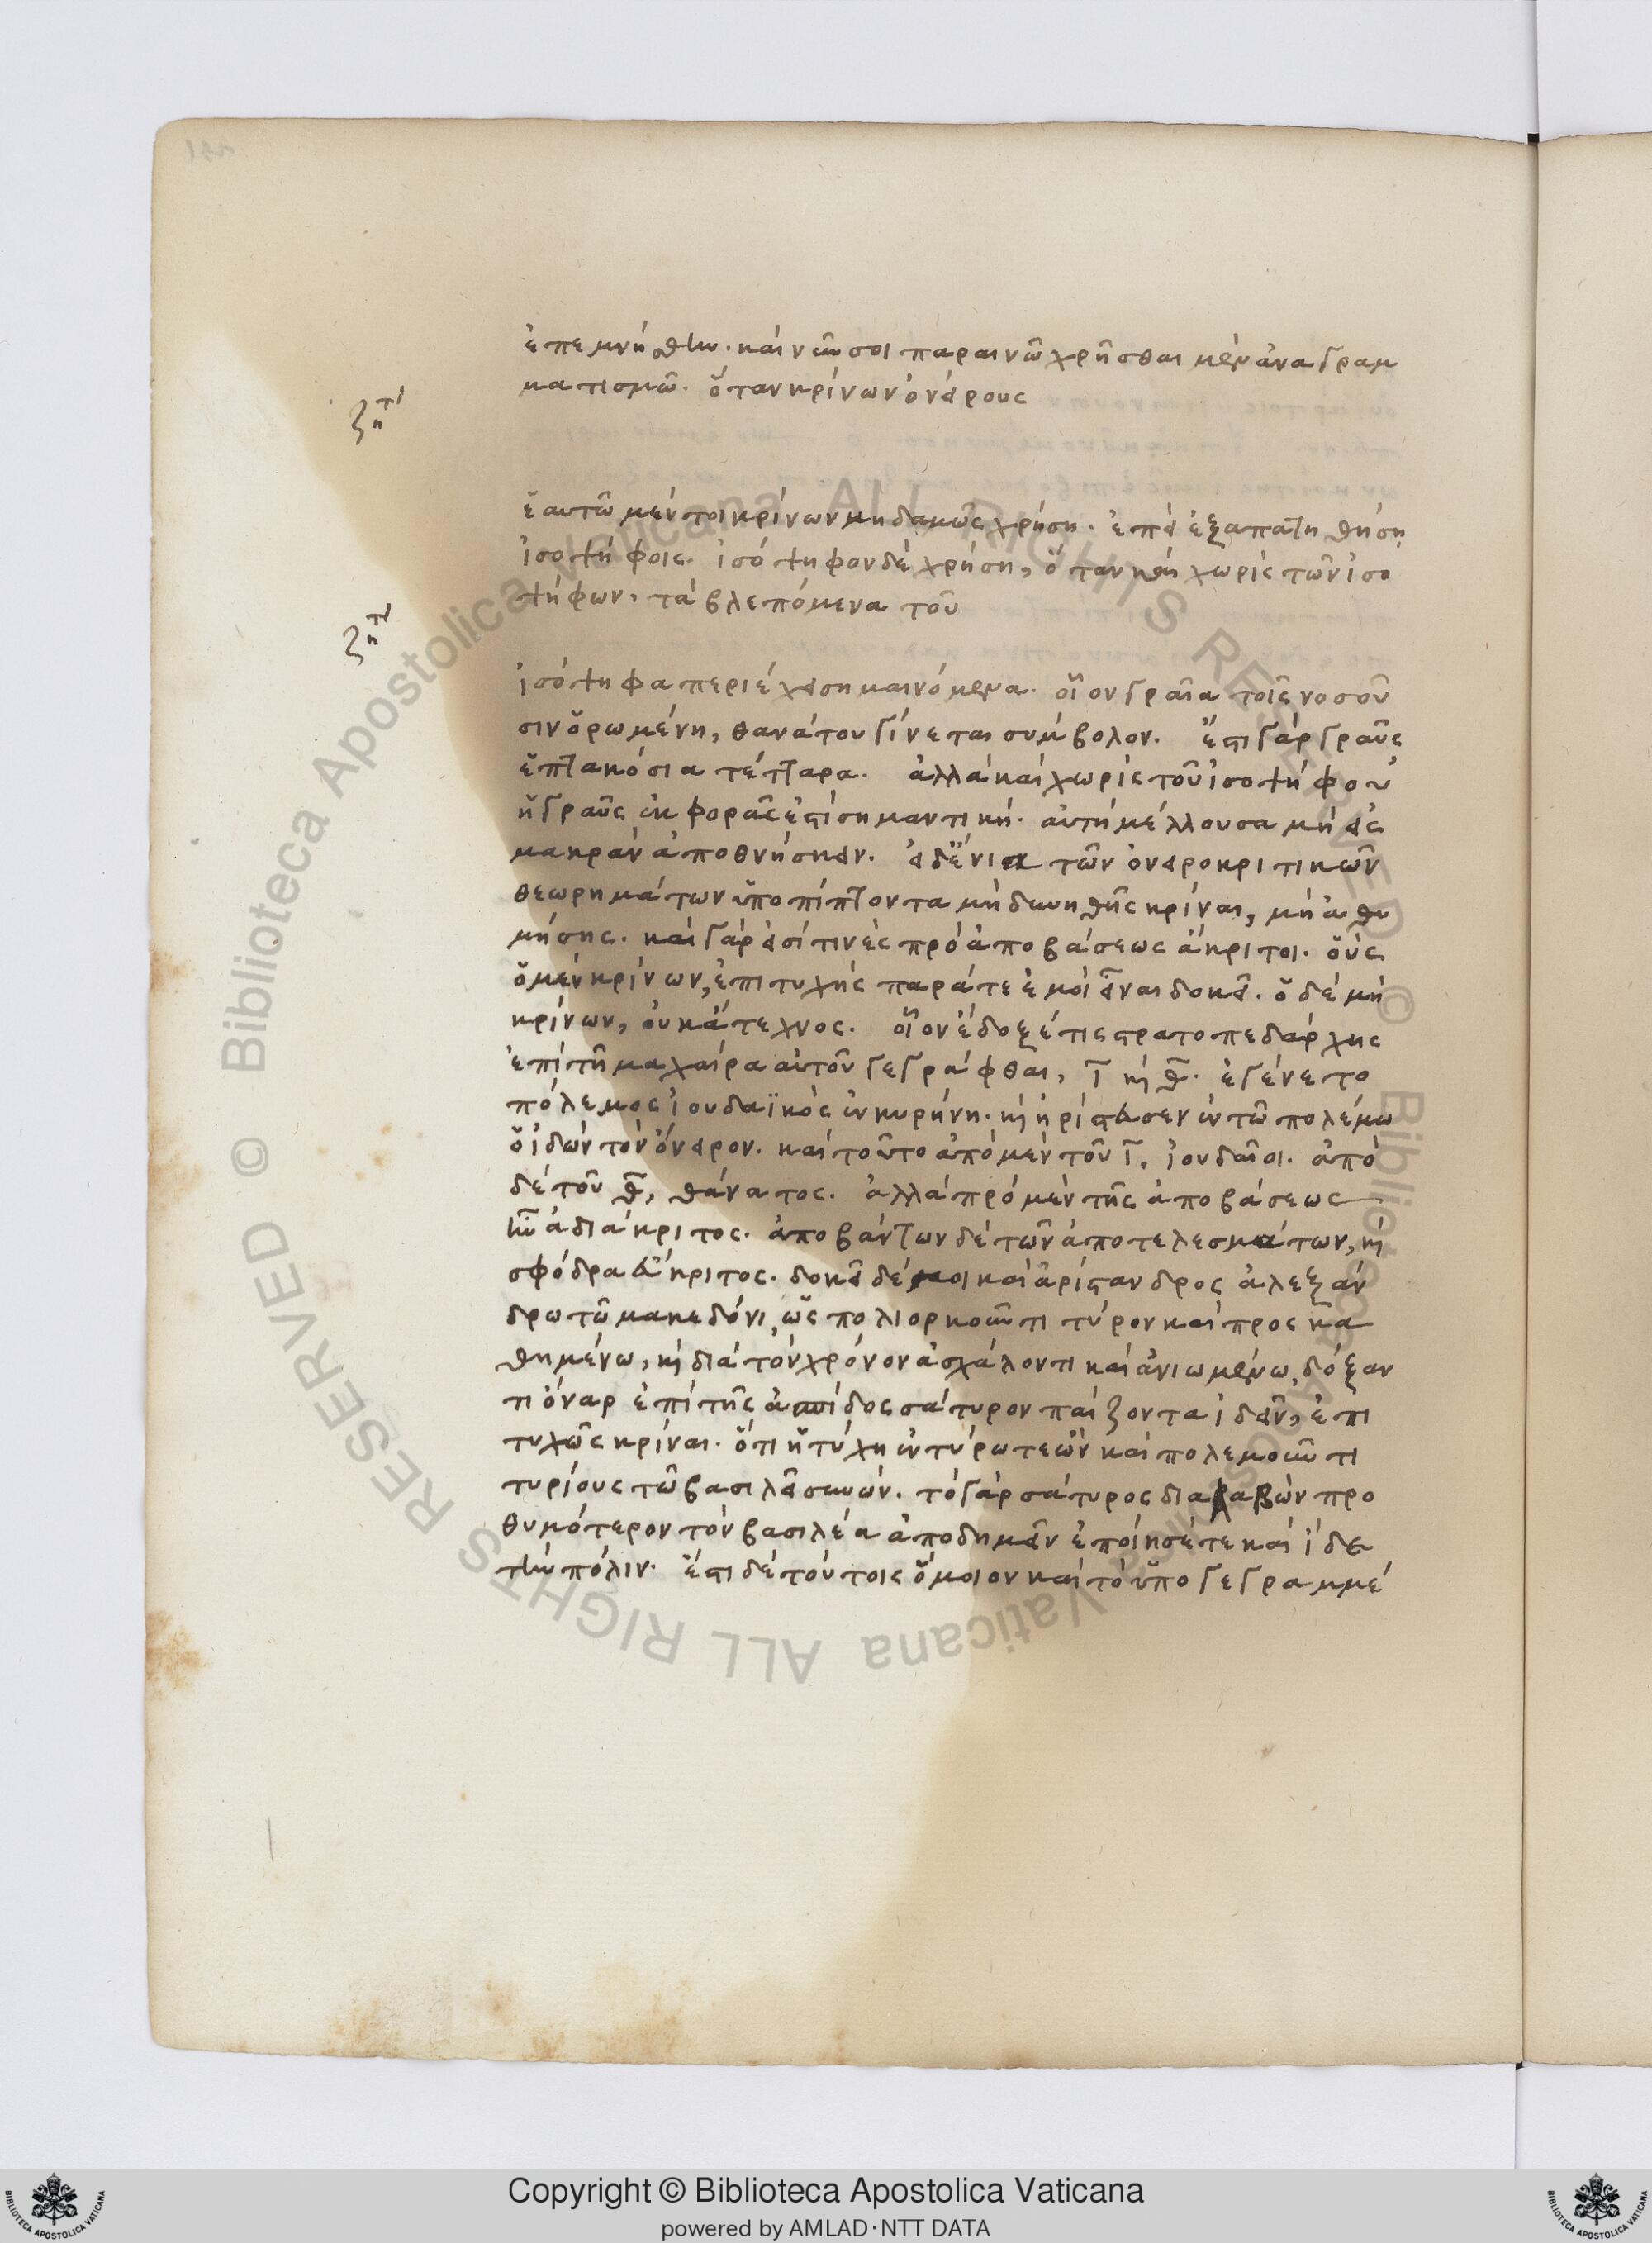 ἐπεμνήσθην. καὶ νῦν σοι παραινῶ χρῆσθαι μὲν ἀναγραμ
ματισμῶ. ὅταν κρίνων ὀνείρους
ζητ
ἑαυτῶ μέν τοι κρίνων μηδαμῶς χρήση. ἐπεὶ ἐξαπατηθήση
ἰσοψήφοις. ἰσόψηφον δὲ χρήση, ὅταν καὶ χωρὶς τῶν ἰσο
ψήφων, τὰ βλεπόμενα τοῦ
ζητ
ἰσόψηφα περιέχει σημαινόμενα. οἷον γραῖα τοῖς νοσοῦ
σιν ὁρωμένη, θανάτου γίνεται σύμβολον. ἔστι γὰρ γραῦς
ἑπτακόσια τέτταρα. ἀλλὰ καὶ χωρὶς τοῦ ἰσοψήφου
ἡ γραῦς ἐκφορᾶς ἐστὶ σημαντική. αὐτὴ μέλλουσα μὴ εἰς
μακρὰν ἀποθνήσκειν. εἰ δὲ ἔνια τῶν ὀνειροκριτικῶν
θεωρημάτων ὑποπίπτοντα μὴ δυνηθῆς κρίναι, μὴ ἀθυ
μήσης. καὶ γὰρ εἰσί τινὲς πρὸ ἀποβάσεως ἄκριτοι. οὓς
ὁ μὲν κρίνων, ἐπιτυχὴς παρά τε ἐμοὶ εἶναι δοκεῖ. ὁ δὲ μὴ
κρίνων, οὐκ ἄτεχνος. οἷον ἔδοξέ τις στρατοπεδάρχης
ἐπὶ τῆ μαχαίρα αὐτοῦ γεγράφθαι, ι καὶ θ. ἐγένετο
πόλεμος ἰουδαϊκὸς ἐν κυρήνη. καὶ ἠρίστευσεν ἐν τῶ πολέμω
ὁ ἰδὼν τὸν ὄνειρον. καὶ τοῦτο ἀπὸ μὲν τοῦ ι, ἰουδαῖοι. ἀπὸ
δὲ τοῦ θ, θάνατος. ἀλλὰ πρὸ μὲν τῆς ἀποβάσεως
ἦν ἀδιάκριτος. ἀποβάντων δὲ τῶν ἀποτελεσμάτων, καὶ
σφόδρα εὔκριτος. δοκεῖ δέ μοι καὶ ἀρίστανδρος ἀλεξάν
δρω τῶ μακεδόνι, ὡς πολιορκοῦντι τύρον καὶ προσκα
θημένω, καὶ διὰ τὸν χρόνον ἀσχάλοντι καὶ ἀνιωμένω, δόξαν
τι ὄναρ ἐπὶ τῆς ἀσπίδος σάτυρον παίζοντα ἰδεῖν, ἐπι
τυχῶς κρίναι. ὅτι ἡ τύχη ἐν τύρω τε ὢν καὶ πολεμοῦντι
τυρίους τῶ βασιλεῖ συνών. τὸ γὰρ σάτυρος διαλαβὼν προ
θυμότερον τὸν βασιλέα ἀποδημεῖν ἐποίησέ τε καὶ ἴδε
τὴν πόλιν. ἔστι δὲ τούτοις ὅμοιον καὶ τὸ ὑπογεγραμμέ
Copyright © Biblioteca Apostolica Vaticana
powered by AMLAD·NTT DATA
© Biblioteca Apostolica Vaticana ALL RIGHTS RESERVED
© Biblioteca Apostolica Vaticana ALL RIGHTS RESERVED
BIBLIOTECA APOSTOLICA VATICANA
BIBLIOTECA APOSTOLICA VATICANA